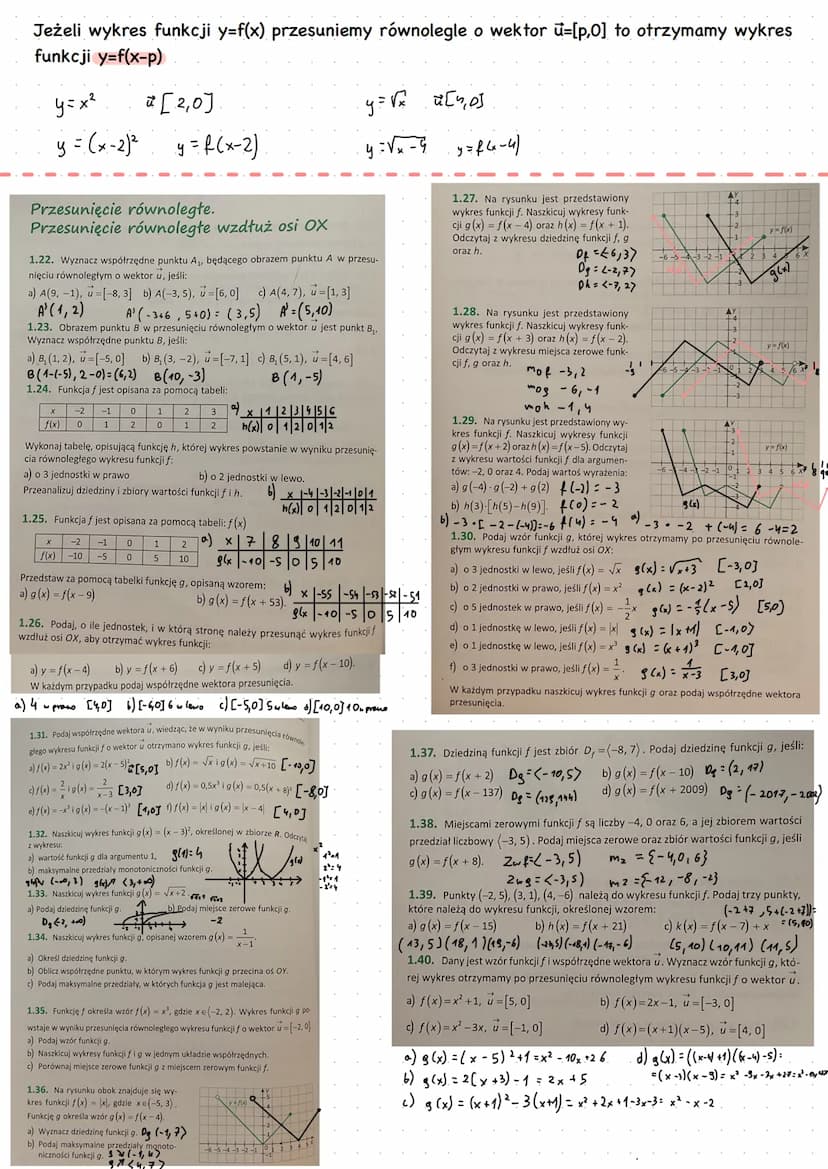 Jeżeli wykres funkcji y=f(x) przesuniemy równolegle o wektor u⃗=[p,0] to otrzymamy wykres
funkcji y=f(x-p)
y=x² u⃗[2,0] y=√x u⃗[4,0]
y=(x-2)² y=f(x-2) y=√x-4 y=f(x-4)
Przesunięcie równoległe.
Przesunięcie równoległe wzdłuż osi OX
1.22. Wyznacz współrzędne punktu A₁, będącego obrazem punktu A w przesu-
nięciu równoległym o wektor u⃗, jeśli:
a) A(9, −1), u⃗=[−8, 3] b) A(−3, 5), u⃗=[6, 0] c) A(4, 7), u⃗=[1, 3]
A'(1,2) A'(-3+6, 5+0)=(3,5) A'=(5,10)
1.23. Obrazem punktu B w przesunięciu równoległym o wektor u⃗ jest punkt B₁.
Wyznacz współrzędne punktu B, jeśli:
a) B₁(1, 2), u⃗=[−5, 0] b) B₁(3, −2), u⃗=[−7, 1] c) B₁(5, 1), u⃗=[4, 6]
B(1-(-5), 2-0)=(6,2) B(10,-3) B(1,-5)
1.24. Funkcja f jest opisana za pomocą tabeli:
x −2 −1 0 1 2 3
f(x) 0 1 2 0 1 2
a) x 1 2 3 4 5 6
h(x) 0 1 2 0 1 2
Wykonaj tabelę, opisującą funkcję h, której wykres powstanie w wyniku przesunię-
cia równoległego wykresu funkcji f:
a) o 3 jednostki w prawo b) o 2 jednostki w lewo.
Przeanalizuj dziedziny i zbiory wartości funkcji f i h.
b) x -4 -3 -2 -1 0 1
h(x) 0 1 2 0 1 2
1.25. Funkcja f jest opisana za pomocą tabeli: f(x)
x −2 −1 0 1 2
f(x) −10 −5 0 5 10
a) x 7 8 9 10 11
g(x -10 -5 0 5 10
Przedstaw za pomocą tabelki funkcję g, opisaną wzorem:
a) g(x) = f(x − 9) b) g(x) = f(x + 53).
b) x -55 -54 -53 -52 -51
g(x -10 -5 0 5 10
1.26. Podaj, o ile jednostek, i w którą stronę należy przesunąć wykres funkcji f
wzdłuż osi OX, aby otrzymać wykres funkcji:
a) y = f(x − 4) b) y = f(x + 6) c) y = f(x + 5) d) y = f(x − 10).
W każdym przypadku podaj współrzędne wektora przesunięcia.
a) 4 w prawo [4,0] b) [-6,0] 6 w lewo c) [-5,0] 5 w lewo d) [10,0] 10 w prawo
1.27. Na rysunku jest przedstawiony
wykres funkcji f. Naszkicuj wykresy funk-
cji g(x) = f(x − 4) oraz h(x) = f(x + 1).
Odczytaj z wykresu dziedzinę funkcji f, g
oraz h.
Df =<-6,3)
Dg =<-2,7)
Dh =<-7,2)
y=f(x)
g(x)
1.28. Na rysunku jest przedstawiony
wykres funkcji f. Naszkicuj wykresy funk-
cji g(x) = f(x + 3) oraz h(x) = f(x − 2).
Odczytaj z wykresu miejsca zerowe funk-
cji f, g oraz h.
mof -3,2
mog -6,-1
moh -1,4
y=f(x)
1.29. Na rysunku jest przedstawiony wy-
kres funkcji f. Naszkicuj wykresy funkcji
g(x) = f(x + 2) oraz h(x) = f(x − 5). Odczytaj
z wykresu wartości funkcji f dla argumen-
tów: −2, 0 oraz 4. Podaj wartoś wyrażenia:
a) g(−4) · g(−2) + g(2) f(-2) = -3
b) h(3)·[h(5) − h(9)]. f(0) = -2
b) -3·[-2-(-4)]=-6 f(4) = -4 a) -3·-2 +(-4)= 6-4=2
y=f(x)
g(x)
1.30. Podaj wzór funkcji g, której wykres otrzymamy po przesunięciu równole-
głym wykresu funkcji f wzdłuż osi OX:
a) o 3 jednostki w lewo, jeśli f(x) = √x g(x)=√x+3 [-3,0]
b) o 2 jednostki w prawo, jeśli f(x) = x² g(x) = (x-2)² [2,0]
c) o 5 jednostek w prawo, jeśli f(x) = −½x g(x) = -½(x-5) [5,0]
d) o 1 jednostkę w lewo, jeśli f(x) = |x| g(x) = |x+1| [-1,0]
e) o 1 jednostkę w lewo, jeśli f(x) = x³ g(x) = (x+1)³ [-1,0]
f) o 3 jednostki w prawo, jeśli f(x) = 1/x. g(x) = 1/x-3 [3,0]
W każdym przypadku naszkicuj wykres funkcji g oraz podaj współrzędne wektora
przesunięcia.
1.31. Podaj współrzędne wektora u⃗, wiedząc, że w wyniku przesunięcia równole-
głego wykresu funkcji f o wektor u⃗ otrzymano wykres funkcji g, jeśli:
a) f(x) = 2x² i g(x) = 2(x − 5)² [5,0] b) f(x) = √x i g(x) = √x+10 [-10,0]
c) f(x) = 2/x i g(x) = 2/x−3 [3,0] d) f(x) = 0,5x³ i g(x) = 0,5(x + 8)³ [-8,0]
e) f(x) = −x³ i g(x) = −(x − 1)³ [1,0] f) f(x) = |x| i g(x) = |x − 4| [4,0]
1.32. Naszkicuj wykres funkcji g(x) = (x − 3)², określonej w zbiorze R. Odczytaj
z wykresu:
a) wartość funkcji g dla argumentu 1, g(1)=4
b) maksymalne przedziały monotoniczności funkcji g.
g(x)↘ (-∞,3) g(x)↗ <3,+∞)
1.33. Naszkicuj wykres funkcji g(x) = √x+2
a) Podaj dziedzinę funkcji g. b) Podaj miejsce zerowe funkcji g.
Dg<-2,+∞) -2
1.34. Naszkicuj wykres funkcji g, opisanej wzorem g(x) = 1/x−1.
a) Określ dziedzinę funkcji g.
b) Oblicz współrzędne punktu, w którym wykres funkcji g przecina oś OY.
c) Podaj maksymalne przedziały, w których funkcja g jest malejąca.
1.35. Funkcję f określa wzór f(x) = x³, gdzie x∈(−2, 2). Wykres funkcji g po-
wstaje w wyniku przesunięcia równoległego wykresu funkcji f o wektor u⃗ = [−2, 0]
a) Podaj wzór funkcji g.
b) Naszkicuj wykresy funkcji f i g w jednym układzie współrzędnych.
c) Porównaj miejsce zerowe funkcji g z miejscem zerowym funkcji f.
1.36. Na rysunku obok znajduje się wy-
kres funkcji f(x) = |x|, gdzie x∈(−5, 3).
Funkcję g określa wzór g(x) = f(x − 4).
a) Wyznacz dziedzinę funkcji g. Dg (-1,7)
b) Podaj maksymalne przedziały monoto-
niczności funkcji g. g↘(-1,4)
g↗<4,7)
y=f(x)
1.37. Dziedziną funkcji f jest zbiór D_f = ⟨−8, 7). Podaj dziedzinę funkcji g, jeśli:
a) g(x) = f(x + 2) Dg=<-10,5) b) g(x) = f(x − 10) Dg=(2,17)
c) g(x) = f(x − 137) Dg = (129,144) d) g(x) = f(x + 2009) Dg = (-2017,-2002)
1.38. Miejscami zerowymi funkcji f są liczby −4, 0 oraz 6, a jej zbiorem wartości
przedział liczbowy ⟨−3, 5). Podaj miejsca zerowe oraz zbiór wartości funkcji g, jeśli
g(x) = f(x + 8). Zwf=<-3,5) mz = {-4,0,6}
Zwg =<-3,5) mz={-12,-8,-2}
1.39. Punkty (−2, 5), (3, 1), (4, −6) należą do wykresu funkcji f. Podaj trzy punkty,
które należą do wykresu funkcji, określonej wzorem: (-2+7,5+(-2+7))=
a) g(x) = f(x − 15) b) h(x) = f(x + 21) c) k(x) = f(x − 7) + x =(5,10)
(13,5)(18,1)(19,-6) (-23,5)(-18,1)(-17,-6) (5,10)(10,11)(11,5)
1.40. Dany jest wzór funkcji f i współrzędne wektora u⃗. Wyznacz wzór funkcji g, któ-
rej wykres otrzymamy po przesunięciu równoległym wykresu funkcji f o wektor u⃗.
a) f(x)=x²+1, u⃗=[5, 0] b) f(x)=2x−1, u⃗=[−3, 0]
c) f(x)=x²−3x, u⃗=[−1, 0] d) f(x)=(x+1)(x−5), u⃗=[4, 0]
a) g(x)=(x-5)²+1=x²-10x+26 d) g(x)=((x-4)+1)((x-4)-5)=
b) g(x)=2(x+3)-1 = 2x+5 =(x-3)(x-9)= x²-9x-3x+27=
c) g(x) = (x+1)²-3(x+1)= x²+2x+1-3x-3= x²-x-2